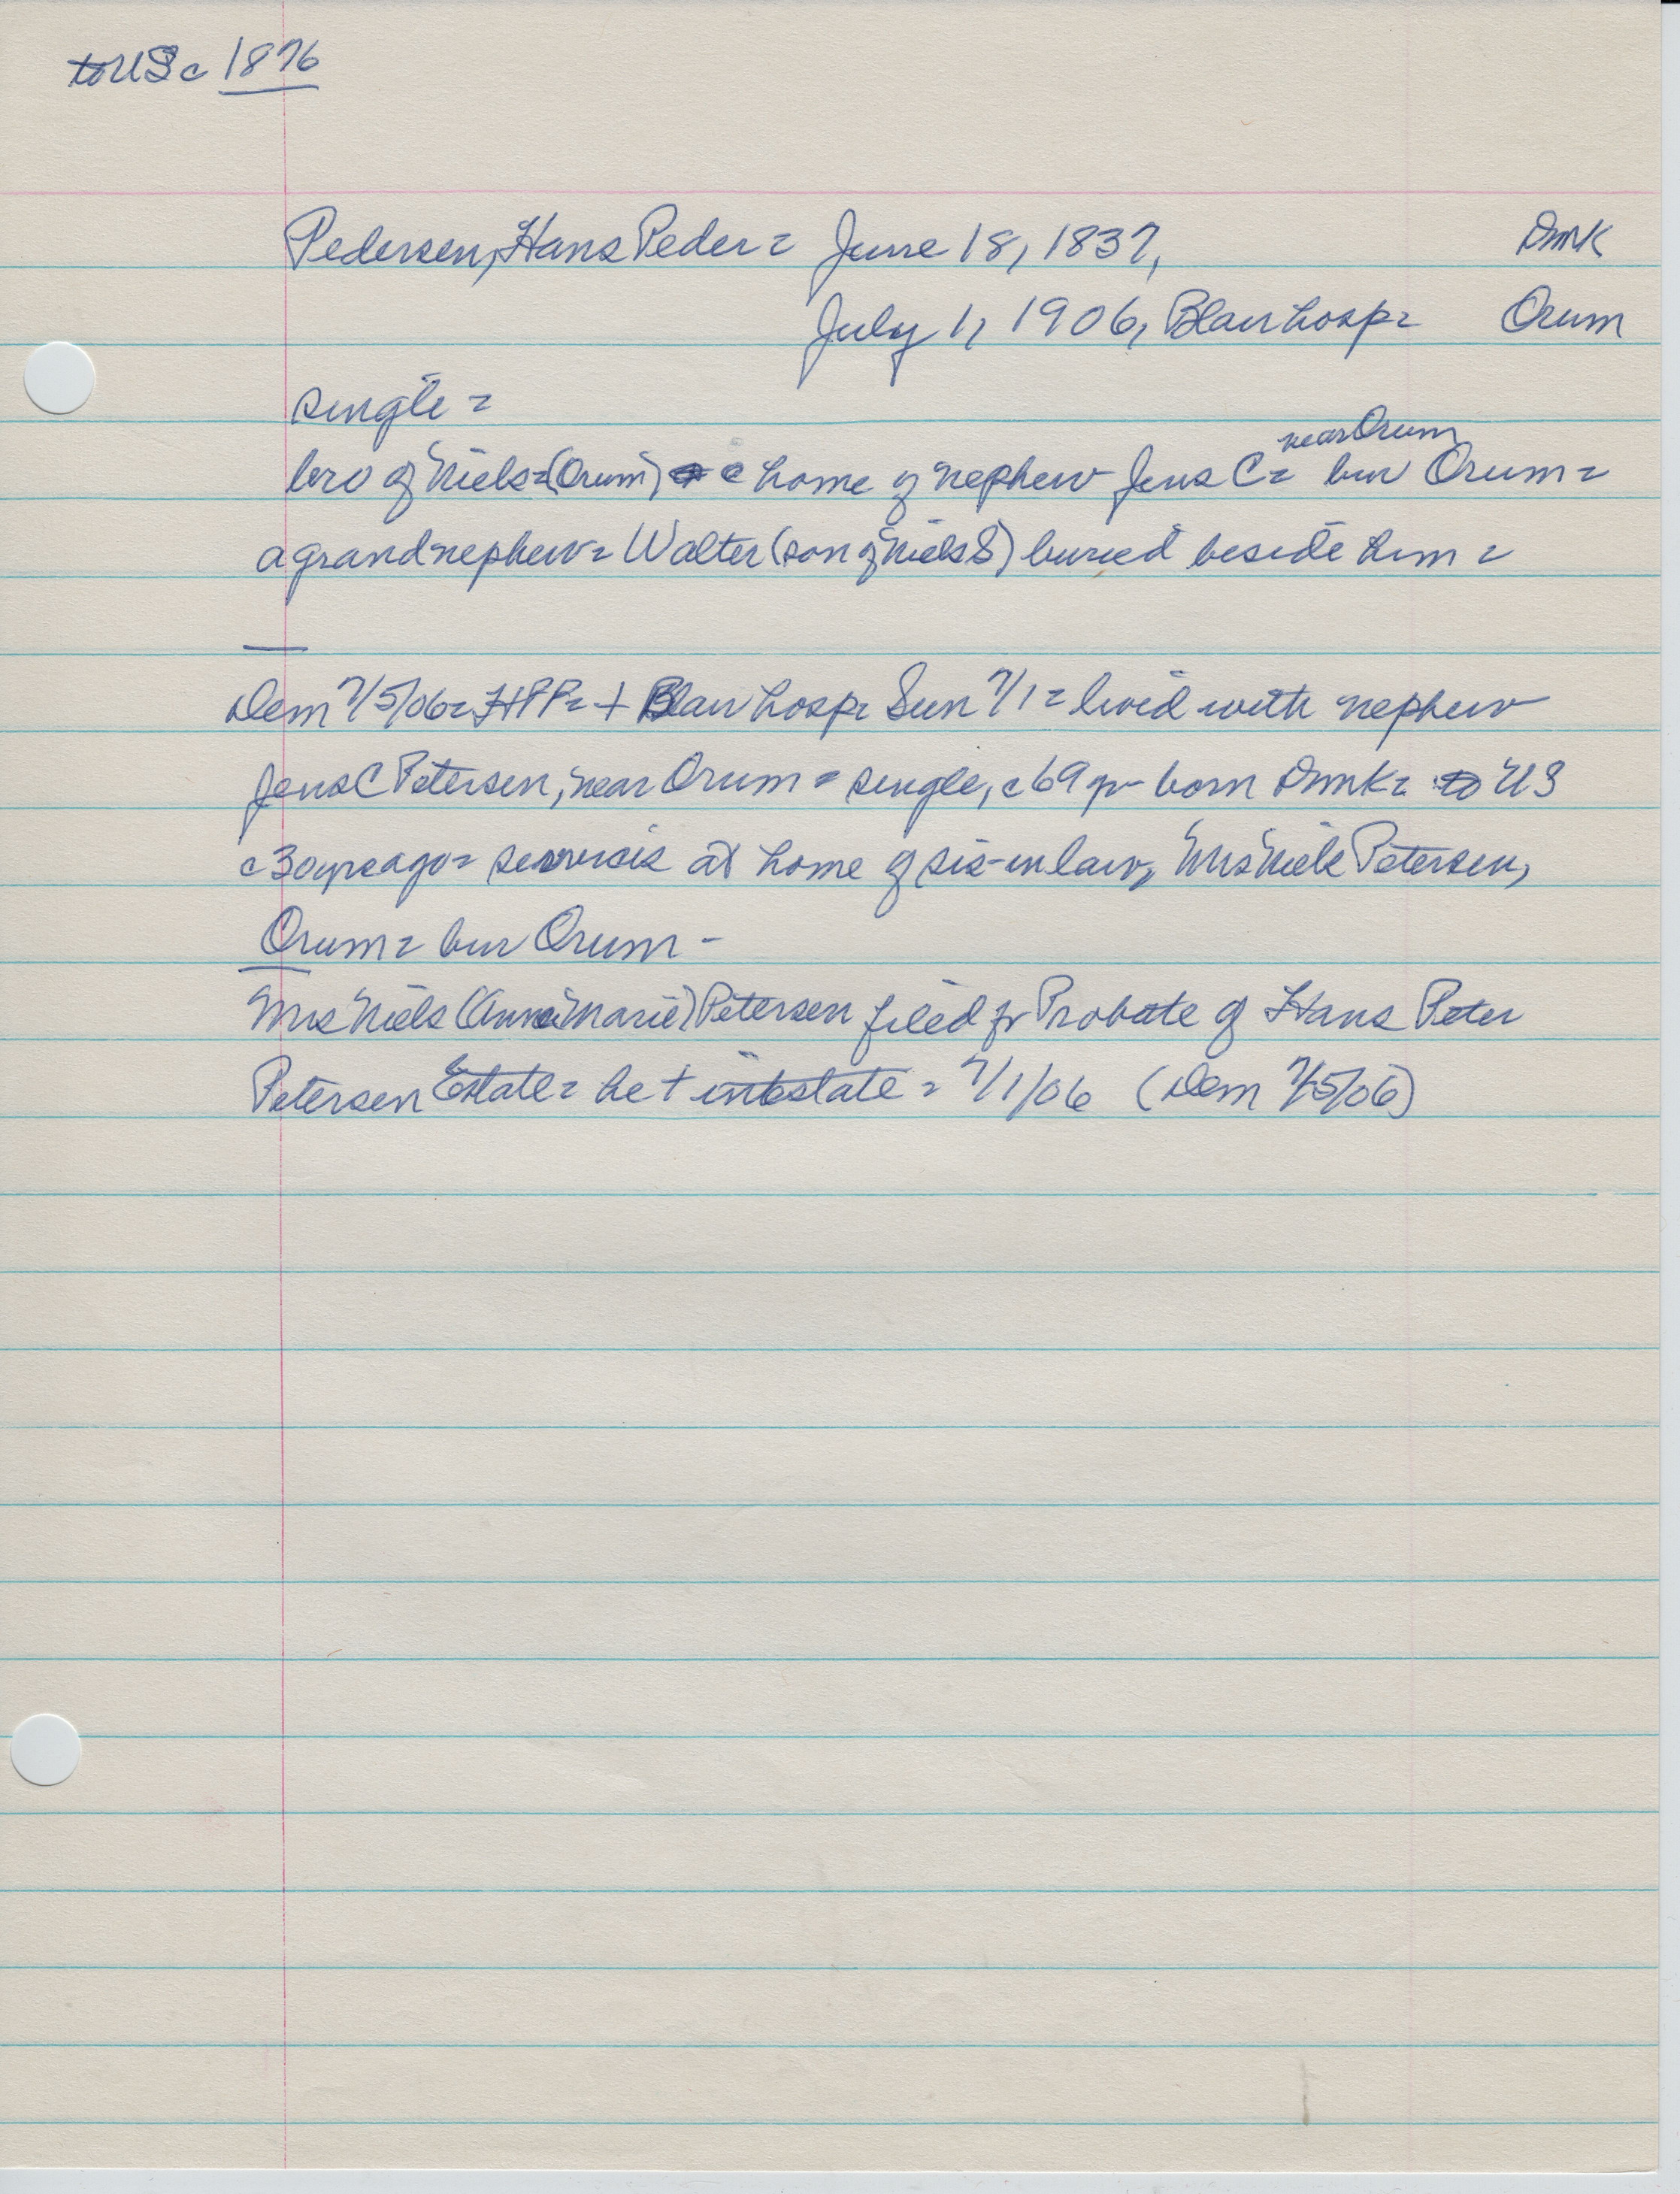 to US c 1876
Pedersen, Hans Peder = June 18, 1837, Dmk
July 1, 1906, Blair hosp = Orum
single =
near Orum
bro of Niels = (Orum) c home of nephew Jens C = bur Orum =
a grandnephew = Walter (son of Niels S) buried beside him =
Dem 7/5/06 = HPP = + Blair hosp = Sun 7/1 = lived with nephew
Jens C Petersen, near Orum = single, c 69 yr born Dmk = to US
c 30 yrs ago = services at home of sis-in law, Mrs Niels Petersen,
Orum = bur Orum -
Mrs Niels (Anna Marie) Petersen filed for Probate of Hans Peter
Petersen Estate = he + intestate = 7/1/06 (Dem 7/5/06)